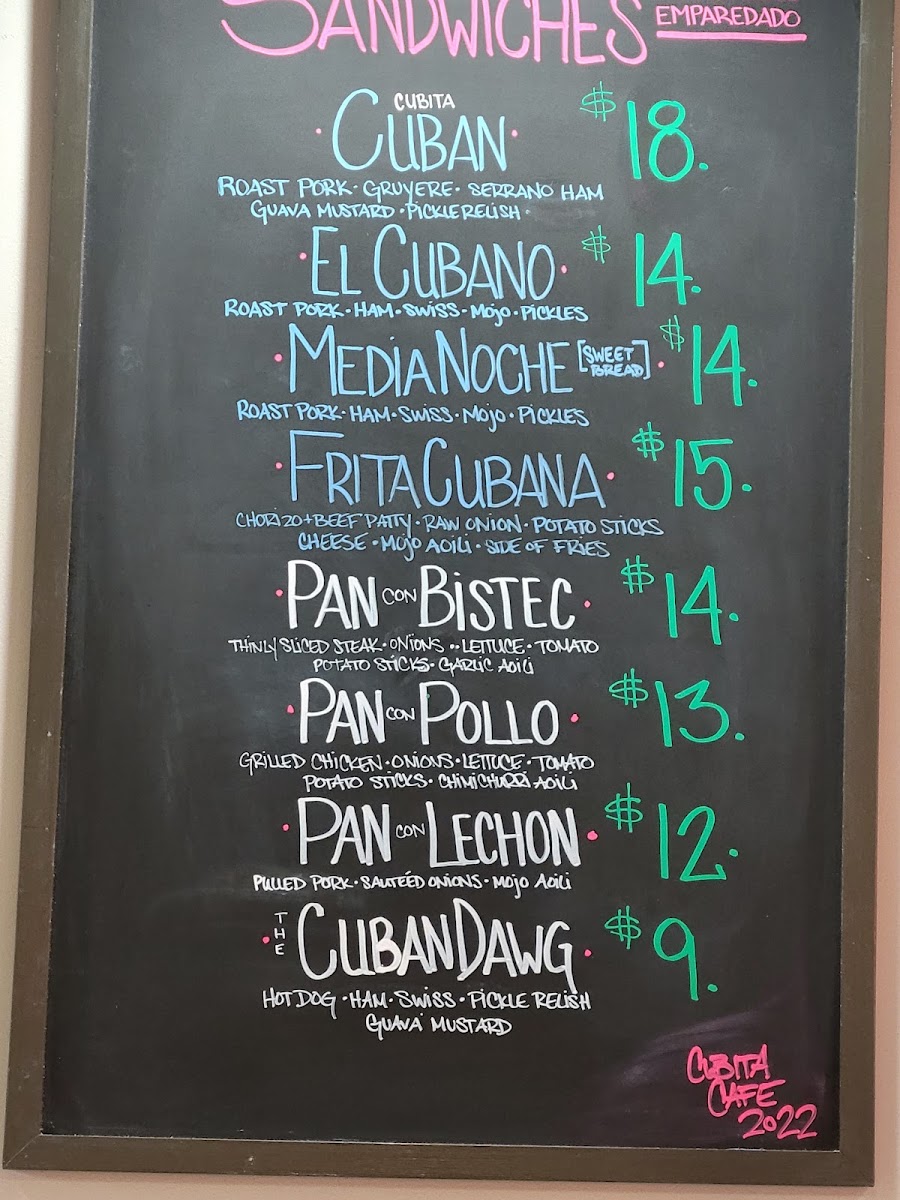 SANDWICHES
EMPAREDADO
CUBITA
·CUBAN· $18.
ROAST PORK · GRUYERE · SERRANO HAM
GUAVA MUSTARD · PICKLE RELISH ·
·EL CUBANO· $14.
ROAST PORK · HAM · SWISS · MOJO · PICKLES
·MEDIA NOCHE [SWEET BREAD]· $14.
ROAST PORK · HAM · SWISS · MOJO · PICKLES
·FRITA CUBANA· $15.
CHORIZO + BEEF PATTY · RAW ONION · POTATO STICKS
CHEESE · MOJO AOILI · SIDE OF FRIES
·PAN CON BISTEC· $14.
THINLY SLICED STEAK · ONIONS ·· LETTUCE · TOMATO
POTATO STICKS · GARLIC AOILI
·PAN CON POLLO· $13.
GRILLED CHICKEN · ONIONS · LETTUCE · TOMATO
POTATO STICKS · CHIMICHURRI AOILI
·PAN CON LECHON· $12.
PULLED PORK · SAUTÉÉD ONIONS · MOJO AOILI
·THE CUBAN DAWG· $9.
HOT DOG · HAM · SWISS · PICKLE RELISH
GUAVA MUSTARD
CUBITA
CAFE
2022